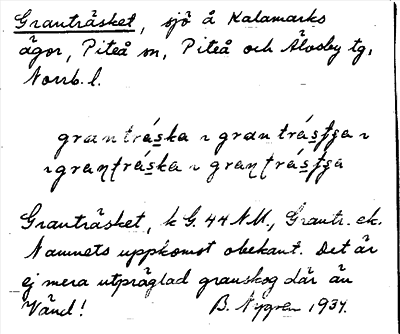 Granträsket, sjö å Kalamarks
ägor, Piteå sn, Piteå och Älvsby tg,
Norrb. l.
grantráska ~ grantrásʃga ~
~ granʈráska ~ granʈrásʃga
Granträsket, k G. 44 N.M., Grantr. ek.
Namnets uppkomst obekant. Det är
ej mera utpräglad granskog där än
Vänd! B. Nygren 1934.